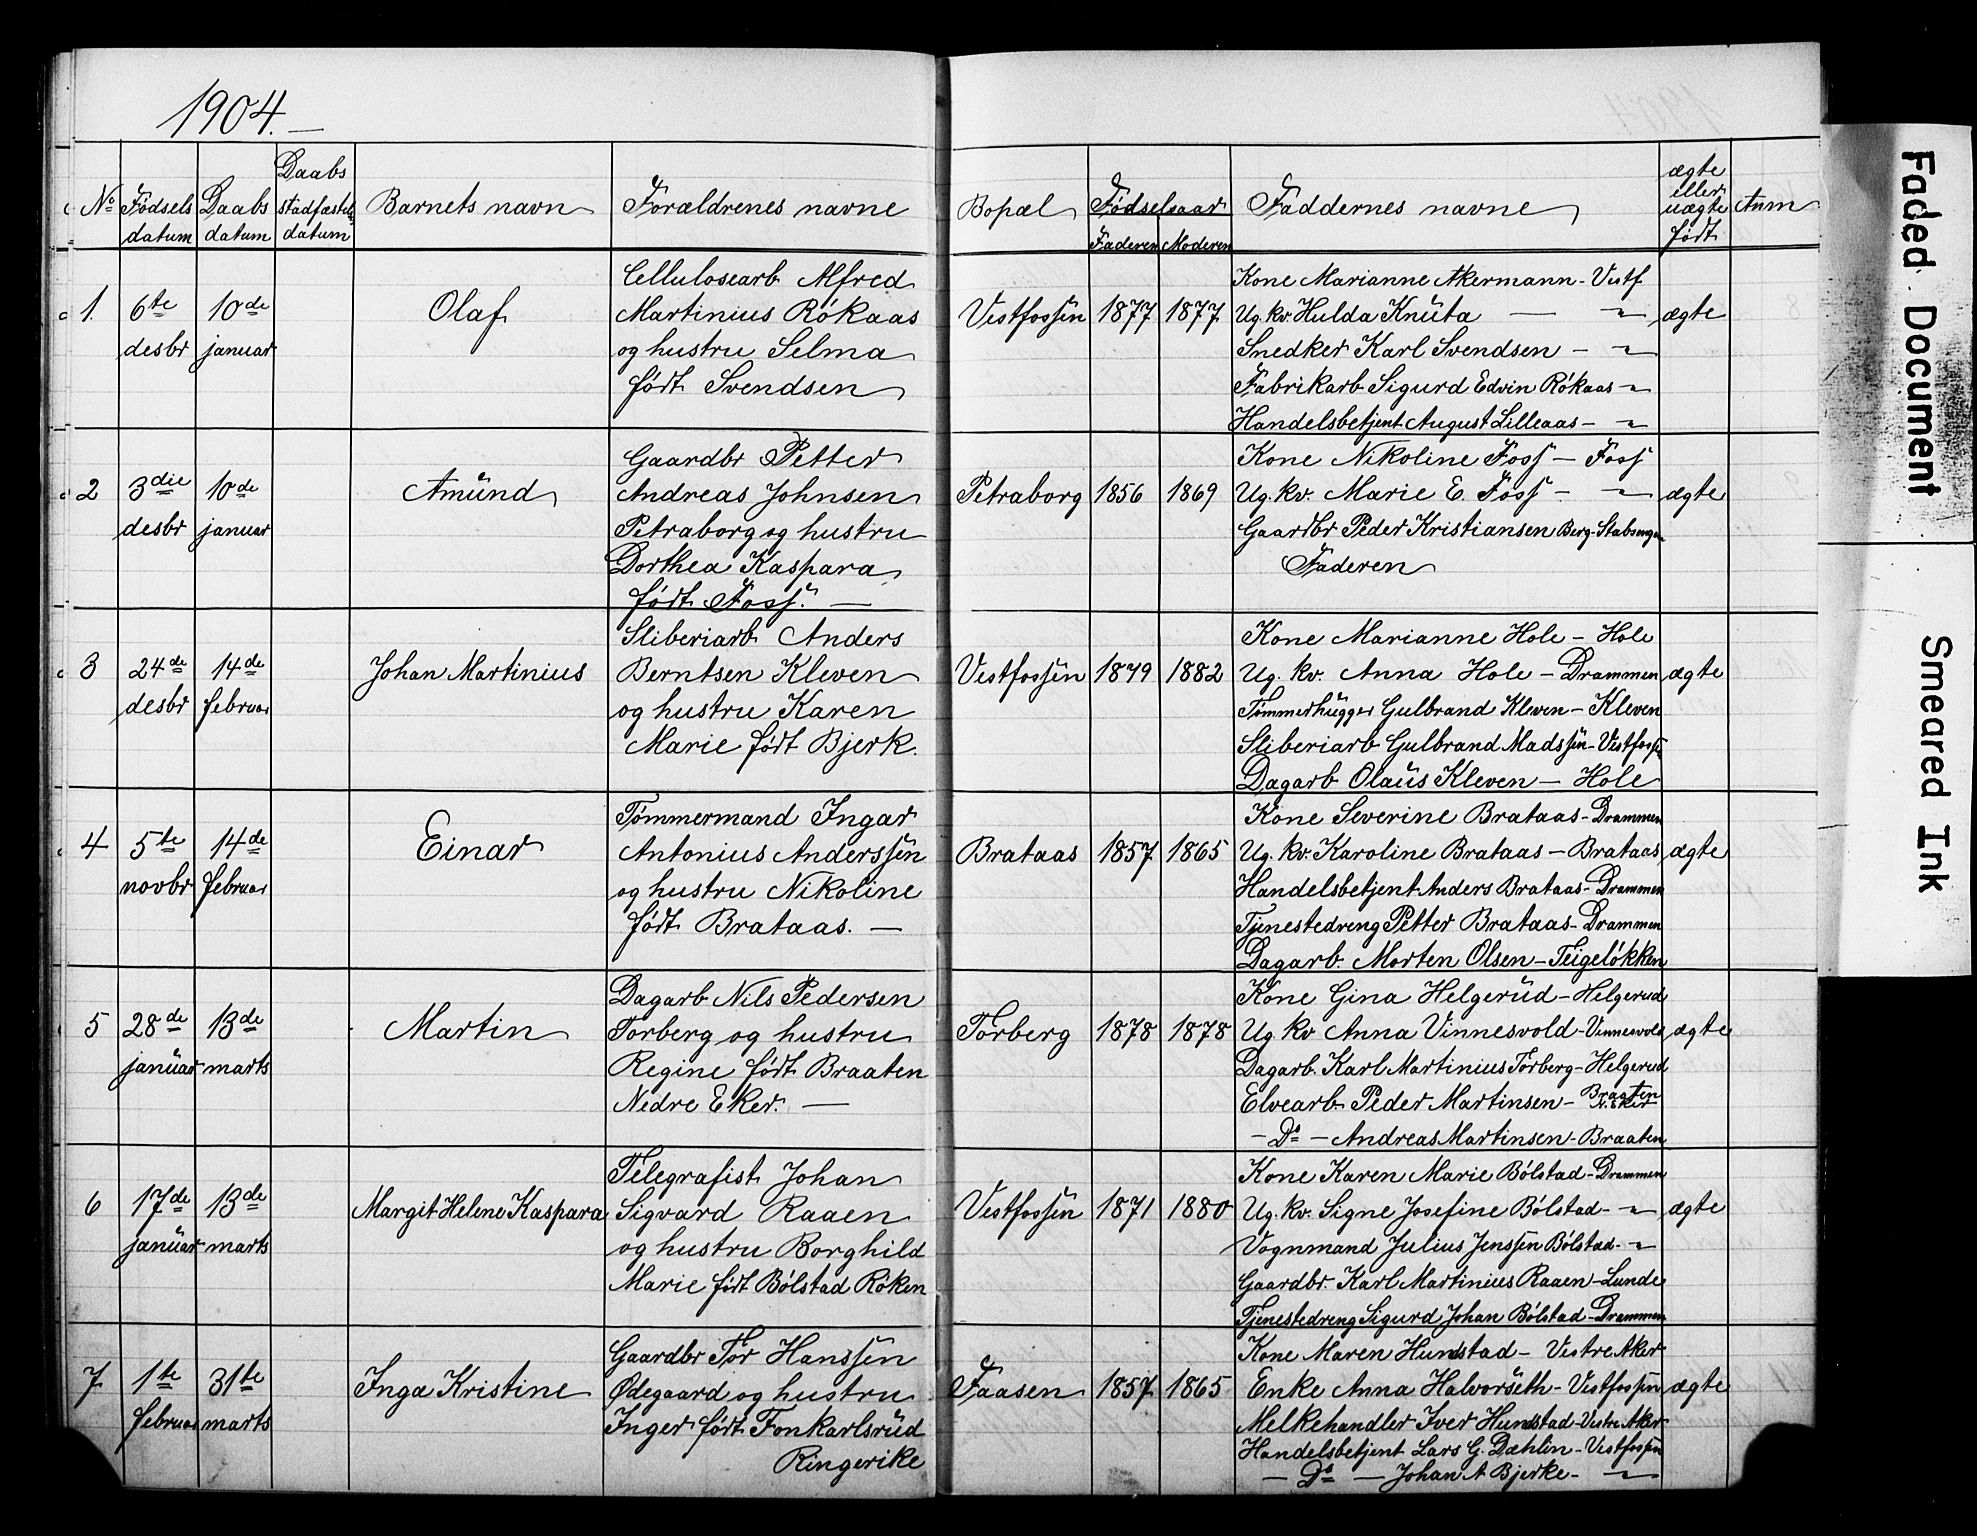 1904. —
No
Fødsels datum
Daabs datum
Daabs stadfæstels datum
Barnets navn
Forældrenes navne
Bopæl
Fødselsaar
Faderen Moderen
Faddernes navne
ægte eller uægte født
Anm
1.
6te desbr
10de januar
Olaf
Cellulosearb Alfred
Martinius Rókaas
og hustru Selma
født Svendsen
Vestfossen
1877
1877
Kone Marianne Akermann - Vestf
Ug. kv. Hulda Knüta — „
Snedker Karl Svendsen - „
Fabrikarb Sigurd Edvin Rókaas - „
Handelsbetjent August Lilleaas - „
ægte
2
3die desbr
10de januar
Amünd
Gaardbr Petter
Andreas Johnsen
Petraborg og hustru
Dorthea Kaspara
født Foss. —
Petraborg
1856
1869
Kone Nikoline Foss - Foss
Ug. kv. Marie E. Foss - „
Gaardbr Peder Kristiansen Berg-
Faderen
ægte
3
24de desbr
14de februar
Johan Martinius
Sliberiarb Anders
Berntsen Kleven
og hustru Karen
Marie født Bjerk.
Vestfossen
1879
1882
Kone Marianne Hole - Hole
Ug. kv. Anna Hole - Drammen
Tømmerhügger Gulbrand Kleven - Kleven
Sliberiarb Gulbrand Madssen - Vestfossen
Dagarb Olaüs Kleven - Hole
ægte
4
5te novbr
14de februar
Einar
Tømmermand Ingar
Antonius Anderssen
og hustru Nikoline
født Brataas. —
Brataas
1857
1865
Kone Severine Brataas - Drammen
Ug. kv. Karoline Brataas - Brataas
Handelsbetjent Anders Brataas - Drammen
Tjenestedreng Petter Brataas - Drammen
Dagarb. Morten Olsen - Teigeløkken
ægte
5
28de janüar
13de marts
Martin
Dagarb Nils Pedersen
Torberg og hustru
Regine født Braaten
Nedre Eker. —
Torberg
1878
1878
Kone Gina Helgerüd - Helgerud
Ug. kv Anna Vinnesvold - Vinnesvold
Dagarb. Karl Martinius Torberg - Helgerud
Elvearb Peder Martinsen - Braaten N. Eker
- Do - Andreas Martinsen - Braaten
ægte
6
17de janüar
13de marts
Margit Helene Kaspara
Telegrafist Johan
Sigvard Raaen
og hustru Borghild
Marie født Bólstad Róken
Vestfossen
1871
1880
Kone Karen Marie Bólstad - Drammen
Ug. kv. Signe Josefine Bólstad - „
Vognmand Julius Jenssen Bólstad - „
Gaardbr. Karl Martinius Raaen - Lunde
Tjenestedreng Sigurd Johan Bólstad - Drammen
ægte
7
1te februar
31te marts
Inga Kristine
Gaardbr Tor Hanssen
Ødegaard og hustru
Inger født Fonkarlsrüd
Ringerike
Faasen
1857
1865
Kone Maren Hundstad - Vestre Aker
Enke Anna Halvorseth - Vestfossen
Melkehandler Iver Hundstad - Vestre Aker
Handelsbetjent Lars G. Dæhlin - Vestfossen
- Do - Johan A Bjerke - „
ægte
Faded Document
Smeared Ink